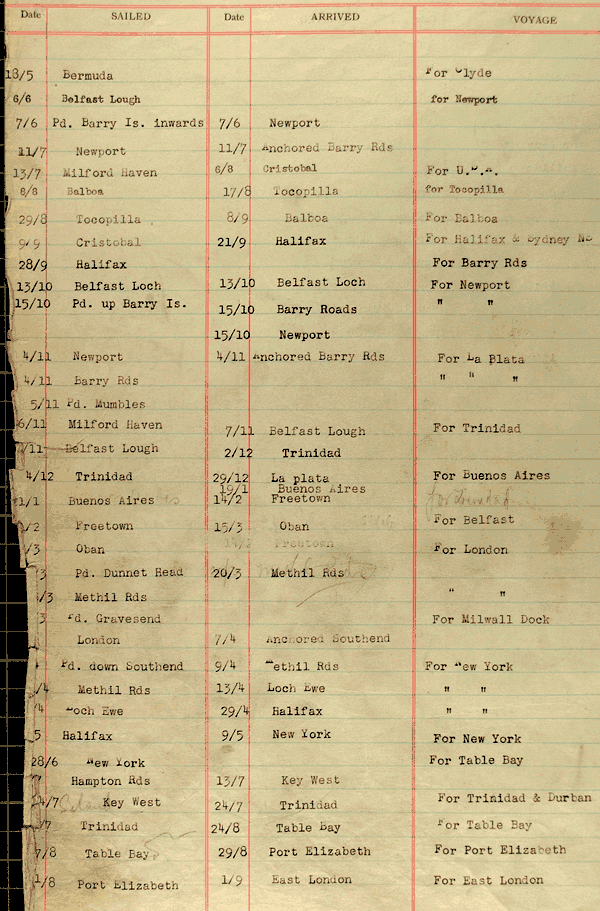 Date SAILED Date ARRIVED VOYAGE
18/5 Bermuda For Clyde
6/6 Belfast Lough for Newport
7/6 Pd. Barry Is. inwards 7/6 Newport
11/7 Newport 11/7 Anchored Barry Rds
13/7 Milford Haven 6/8 Cristobal For U.S.A.
8/8 Balboa 17/8 Tocopilla for Tocopilla
29/8 Tocopilla 8/9 Balboa For Balboa
9/9 Cristobal 21/9 Halifax For Halifax & Sydney NS
28/9 Halifax For Barry Rds
13/10 Belfast Loch 13/10 Belfast Loch For Newport
15/10 Pd. up Barry Is. 15/10 Barry Roads " "
15/10 Newport
4/11 Newport 4/11 Anchored Barry Rds For La Plata
4/11 Barry Rds " " "
5/11 Pd. Mumbles
6/11 Milford Haven 7/11 Belfast Lough For Trinidad
/11 Belfast Lough 2/12 Trinidad
4/12 Trinidad 29/12 La plata For Buenos Aires
19/1 Buenos Aires
1/1 Buenos Aires 14/2 Freetown for Trinidad
1/2 Freetown 15/3 Oban For Belfast
/3 Oban 14/2 Freetown For London
/3 Pd. Dunnet Head 20/3 Methil Rds
/3 Methil Rds " "
3 Pd. Gravesend For Milwall Dock
London 7/4 Anchored Southend
Pd. down Southend 9/4 Methil Rds For New York
/4 Methil Rds 13/4 Loch Ewe " "
/4 Loch Ewe 29/4 Halifax " "
5 Halifax 9/5 New York For New York
28/6 New York For Table Bay
Hampton Rds 13/7 Key West
/7 Key West 24/7 Trinidad For Trinidad & Durban
/7 Trinidad 24/8 Table Bay For Table Bay
7/8 Table Bay 29/8 Port Elizabeth For Port Elizabeth
1/8 Port Elizabeth 1/9 East London For East London